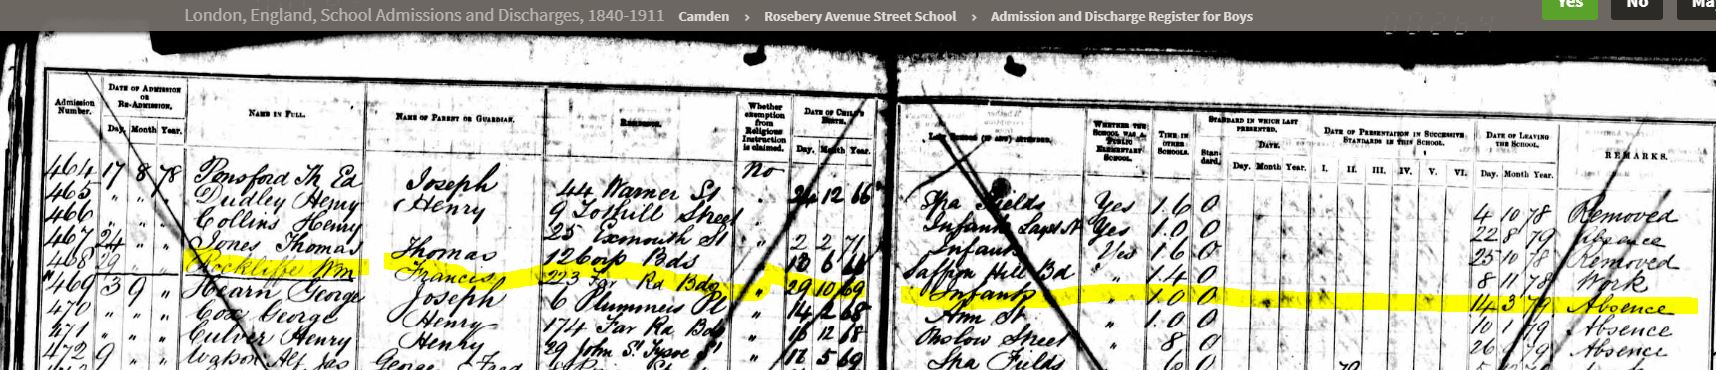 London, England, School Admissions and Discharges, 1840-1911 Camden › Rosebery Avenue Street School › Admission and Discharge Register for Boys
Yes No Ma
Admission Number. DATE OF ADMISSION OR RE-ADMISSION. Day. Month Year. NAME IN FULL. NAME OF PARENT OR GUARDIAN. RESIDENCE. Whether exemption from Religious Instruction is claimed. DATE OF CHILD'S BIRTH. Day. Month Year. LAST SCHOOL (IF ANY) ATTENDED. WHETHER THE SCHOOL WAS A PUBLIC ELEMENTARY SCHOOL. TIME IN OTHER SCHOOLS. STANDARD IN WHICH LAST PRESENTED. Standard. DATE. Day. Month Year. DATE OF PRESENTATION IN SUCCESSIVE STANDARDS IN THIS SCHOOL. I. II. III. IV. V. VI. DATE OF LEAVING THE SCHOOL. Day. Month Year. REMARKS.
464 17 8 78 Ponsford Th Ed Joseph 44 Warner St No 24 12 66 Spa Fields Yes 1.6 0 4 10 78 Removed
465 " " " Dudley Henry Henry 9 Tothill Street Infants Yes 1.0 0 22 8 79 Absence
466 " " " Collins Henry 25 Exmouth St " 2 2 71 Infants Yes 1.6 0 25 10 78 Removed
467 24 " " Jones Thomas Thomas 126 Bds 6 Saffron Hill Bd " 1.4 0 8 11 78 Work
468 29 " " Rockliffe Wm Francis 223 Far Rd Bdgs " 29 10 69 Infants " 1.0 0 14 3 79 Absence
469 3 9 " Hearn George Joseph 6 Plummers Pl " 14 2 68 Ann St " 1.0 0 10 1 79 Absence
470 " " " Cox George Henry 174 Far Rd Bds " 12 68 Onslow Street " 8 0 26 79 Absence
471 " " " Culver Henry Henry 29 John St Tysoe St " 5 69 Spa Fields
472 9 " Watson Alf Jas George Fred